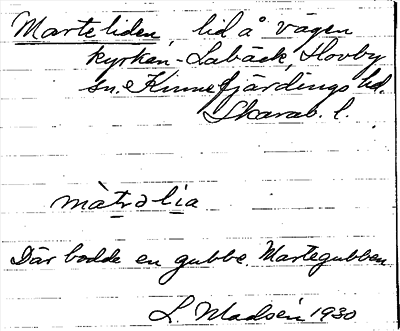 Marteliden, lid å vägen
kyrkan - Labäck, Hovby
sn. Kinnefjärdings hd.
Skarab. l.
màtəlìa
Där bodde en gubbe. Martegubben
L. Madsén 1930